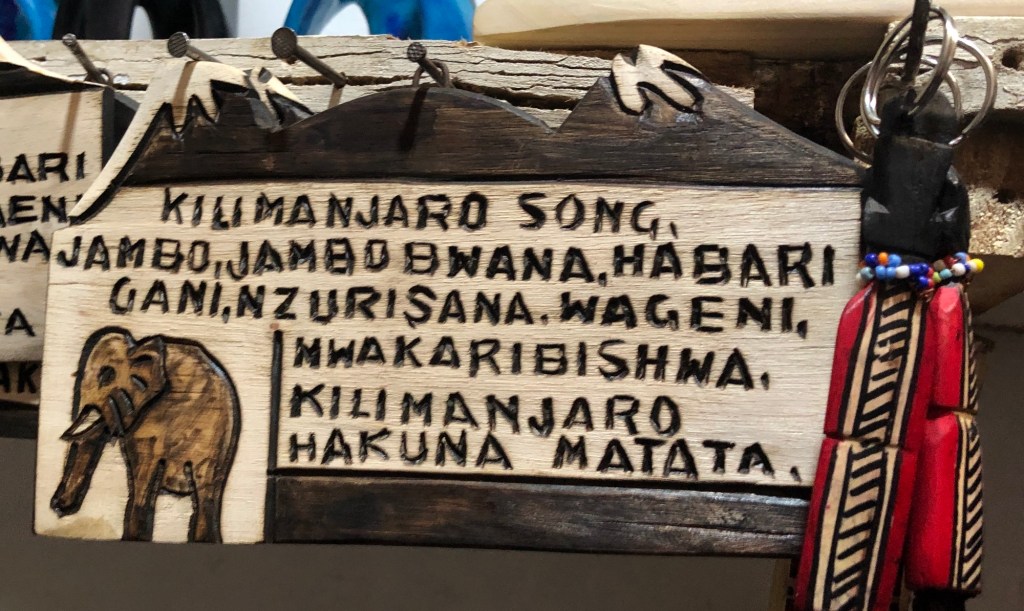 KILIMANJARO SONG.
JAMBO, JAMBO BWANA, HABARI
GANI, NZURI SANA. WAGENI,
MWAKARIBISHWA.
KILIMANJARO
HAKUNA MATATA.